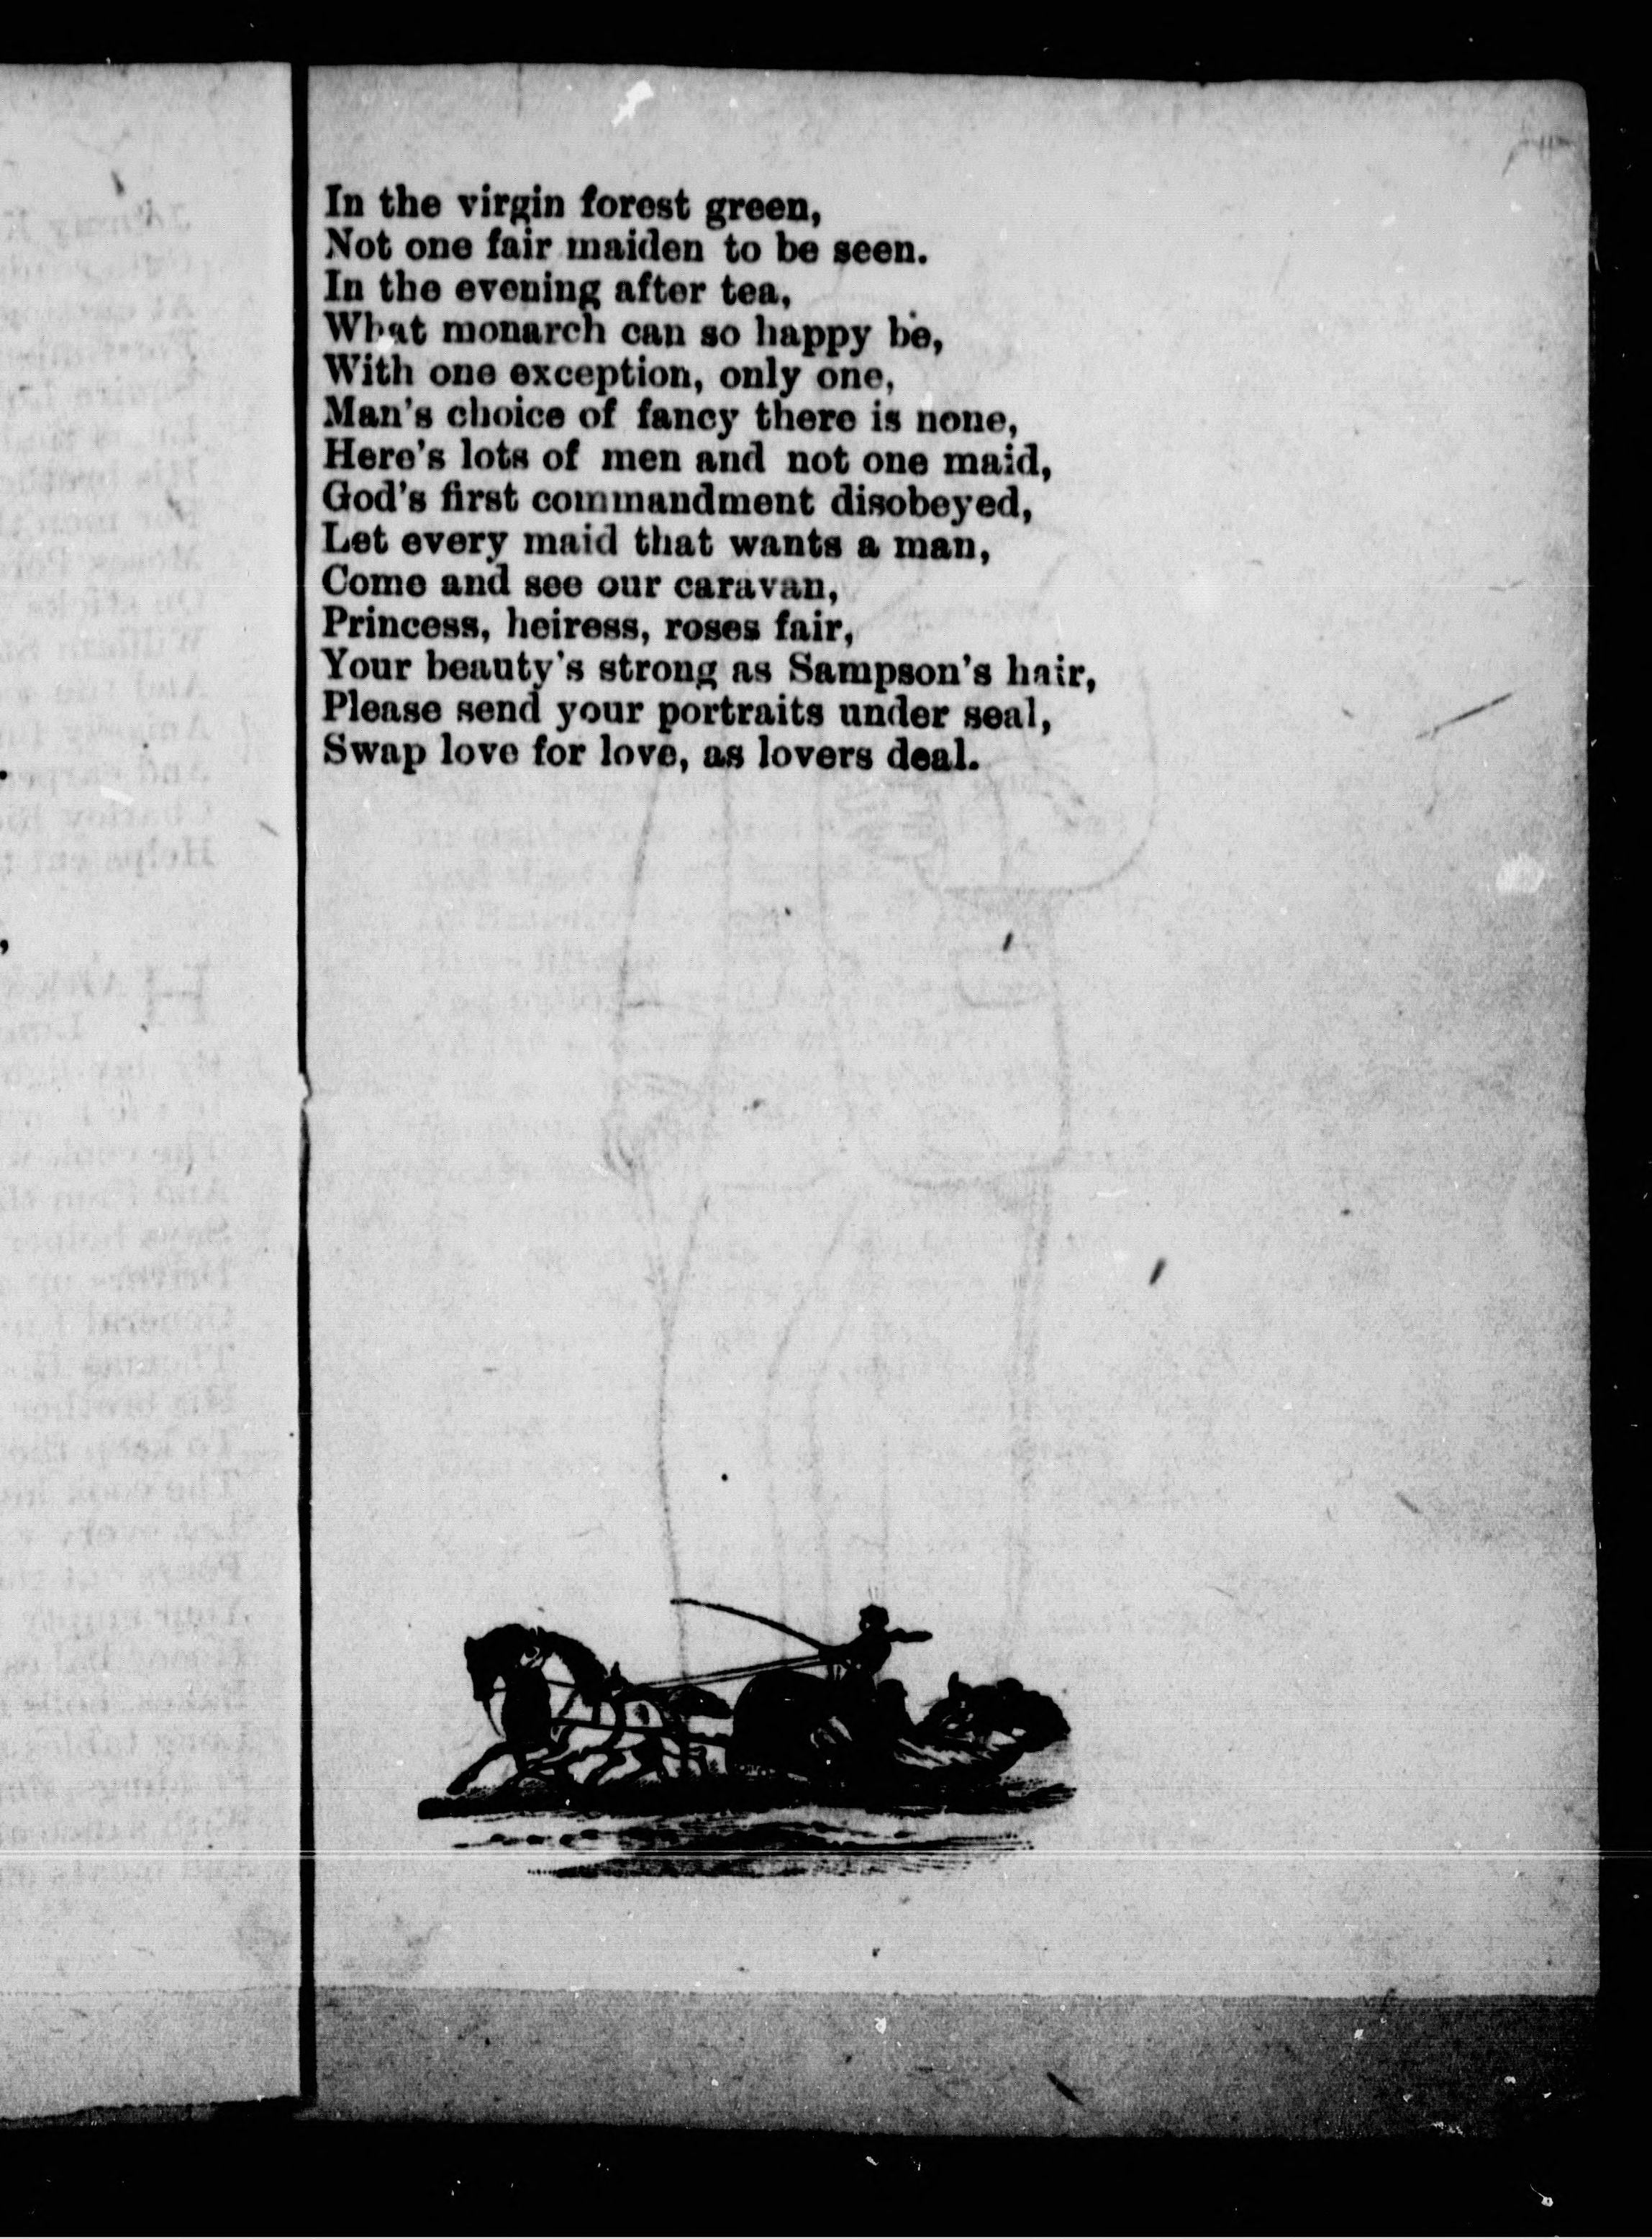 In the virgin forest green,
Not one fair maiden to be seen.
In the evening after tea,
What monarch can so happy be,
With one exception, only one,
Man's choice of fancy there is none,
Here's lots of men and not one maid,
God's first commandment disobeyed,
Let every maid that wants a man,
Come and see our caravan,
Princess, heiress, roses fair,
Your beauty's strong as Sampson's hair,
Please send your portraits under seal,
Swap love for love, as lovers deal.